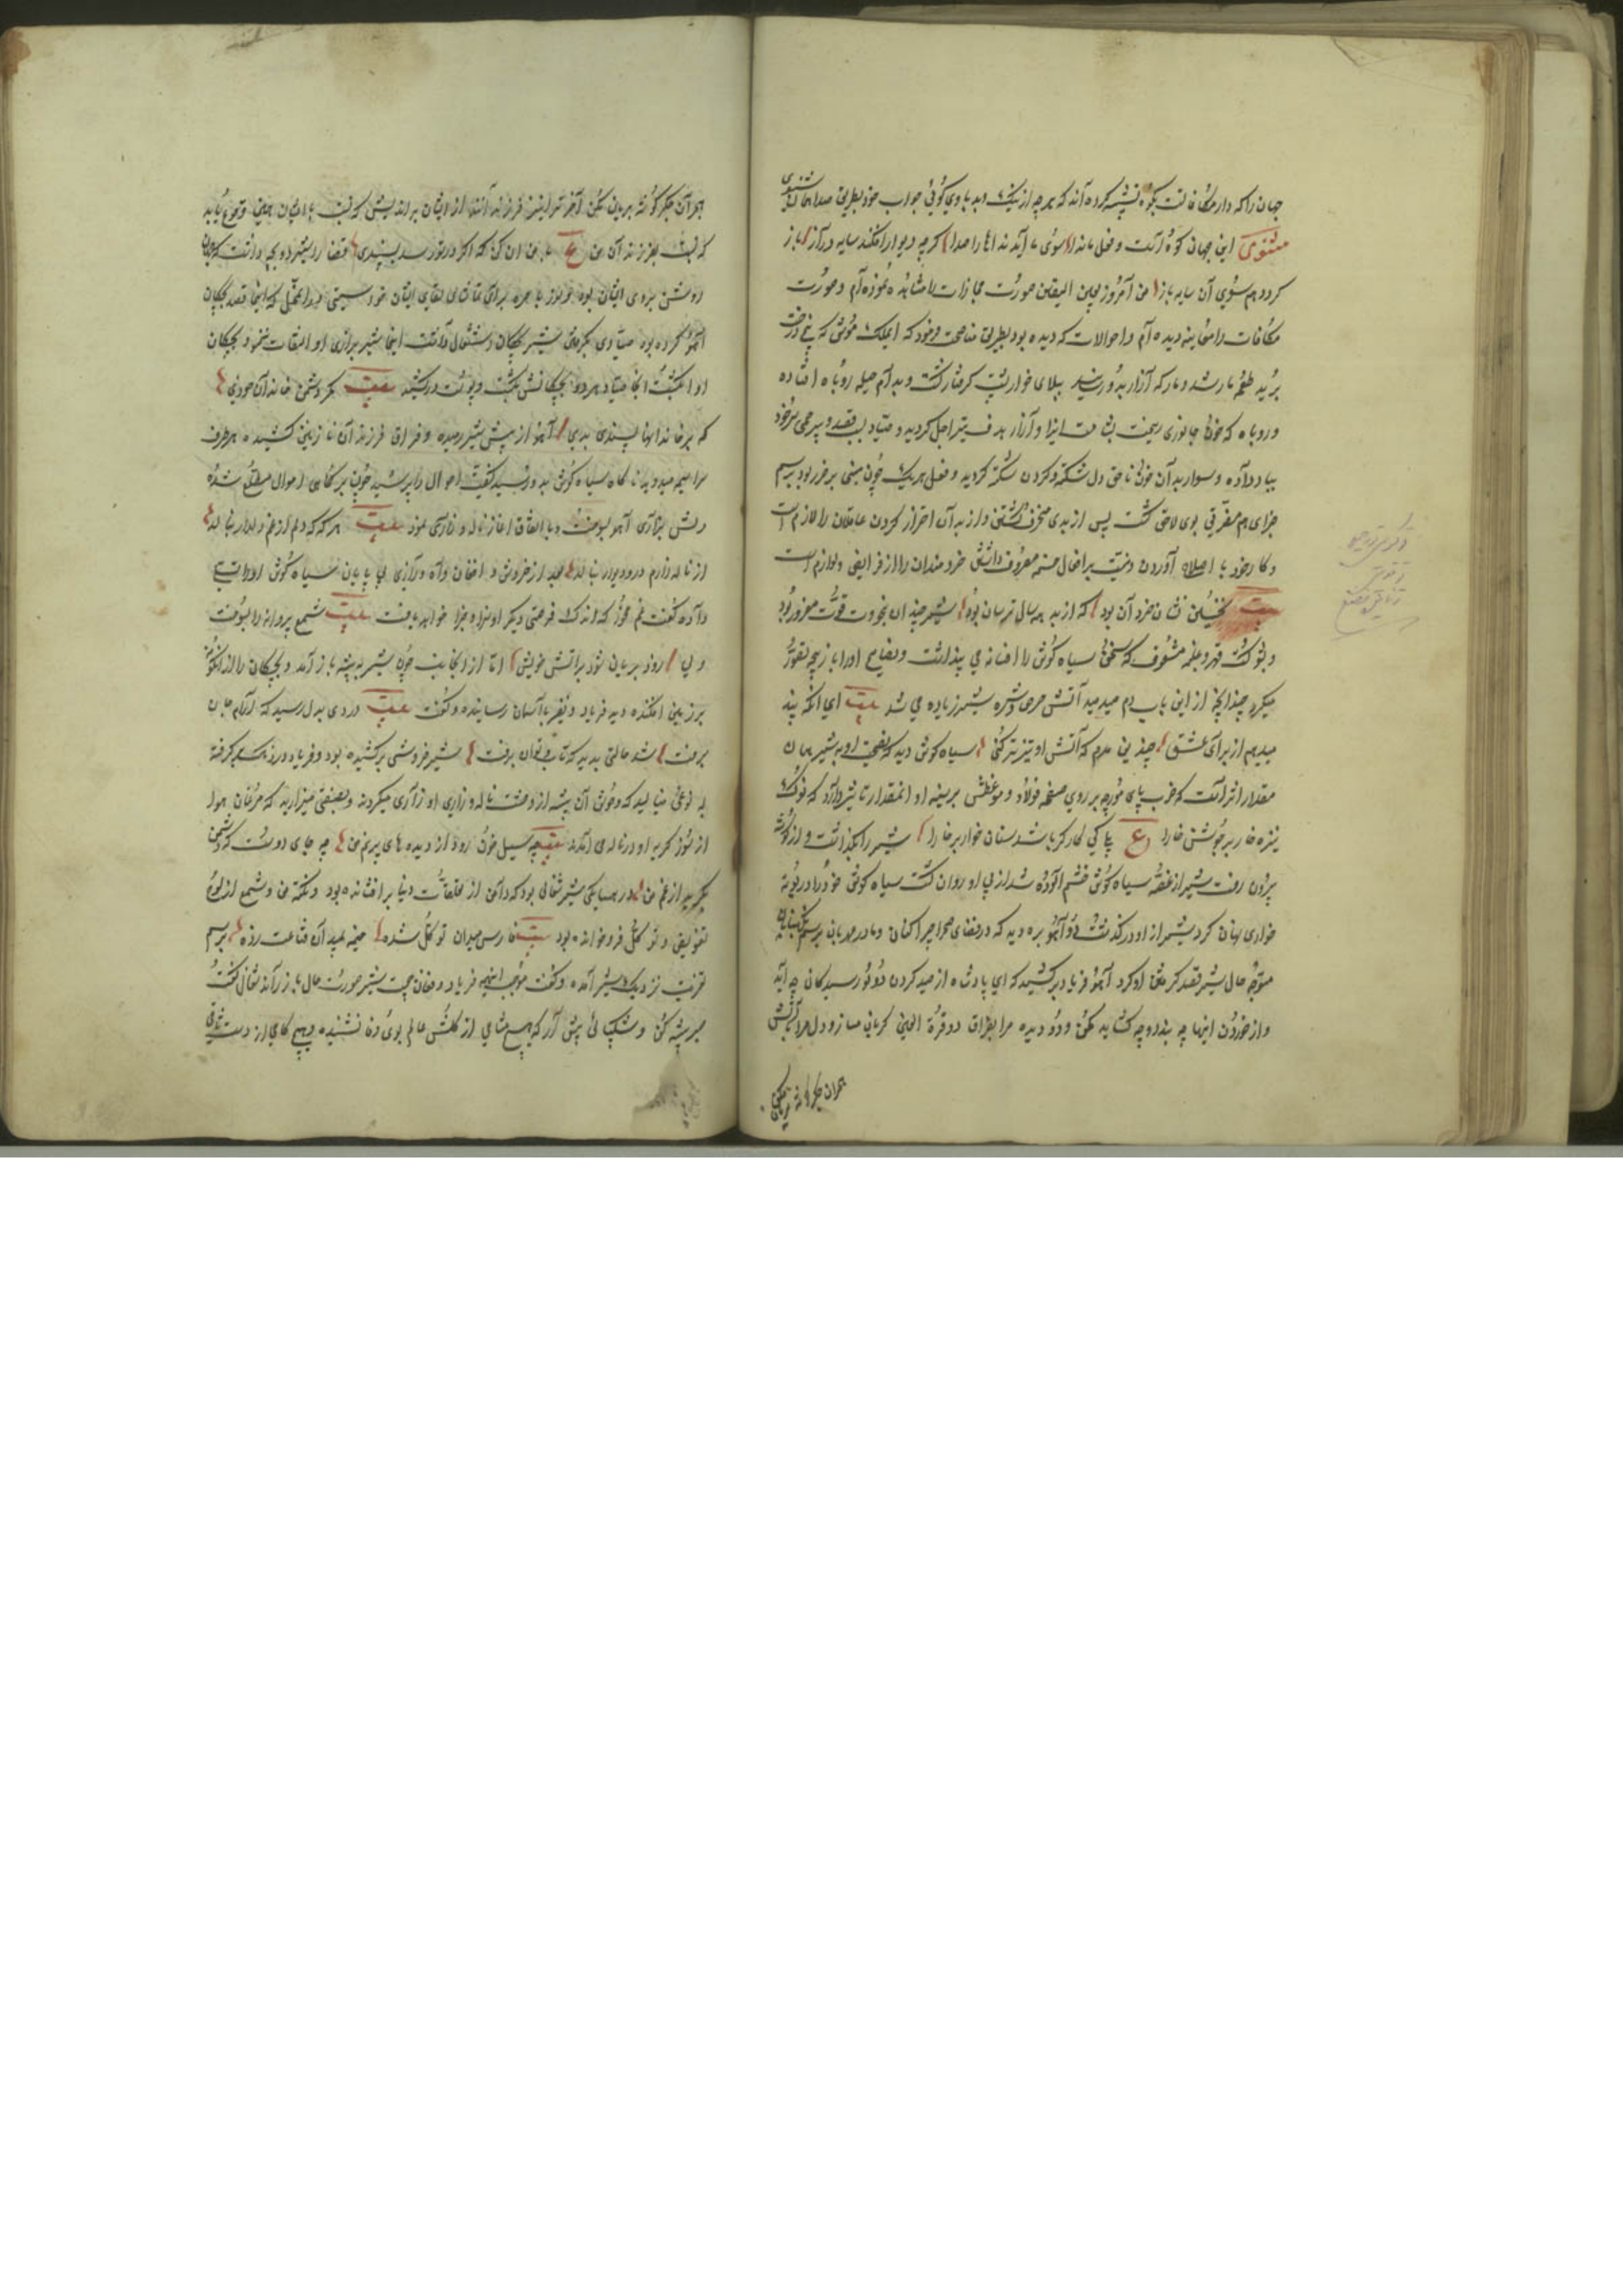 جهان را که دار مکافاتست بکوه تشبیه کرده اند که هرچه از نیک و بد با وی کوئی جواب خود بطریق صدا همان شنوی
مثنوی این جهان کوه است و فعل ما ندا سوی ما آید نداها را صدا کرچه دیوار افکند سایه دراز باز
کردد هم سوی آن سایه باز من امروز بعین الیقین صورت مجازات را مشاهده نموده ام و صورت
مکافات را معاینه دیده ام و احوالات که دیده بود بطریق نمود که موش که بیخ درخت
برید طعمه مار شد و مار که آزار بدو رسانید ببلای خارپشت کرفتار کشت و بدام حیله روباه افتاده
و روباه که خون جانوری ریخت آزار هدف تیر اجل کردید و صیاد
بباد داده و سوار بدان خون ناحق دل شکسته و کردن شکسته کردید و فعل هر یک چون مبنی بر ضرر بود
جزای هم بوی لاحق کشت پس از بدی منحرف کشتن و از بد آن احتراز کردن عاقلان را لازم است
و کار خود با اصلاح آوردن و نیت بر افعال خردمندان را از فرایض و لوازم است
بیت نخستین نشان خرد آن بود که از بد همه سال ترسان بود شیر چندان بقوت مغرور بود
و بشوکت قهر و غلبه مشعوف که سخن سیاه کوش را افسانه می پنداشت و نصایح او را بازیچه تصور
میکرد چندانچه از این باب دم میدمید آتش حرص و شره شیر زیاده می شد بیت ای آنکه پند
میدهم از برای عشق چندین مدم که آتش او تیزتر کنی سیاه کوش دید که نصیحت او به شیر همان
مقدار اثر است که ضرب پای مورچه بر روی صفحه فولاد و موعظتش بر سینه او آنمقدار تاثیر دارد که نوک
نیزه خار بر جوشن خارا ع کی کارکر باشد سنان خار بر خارا شیر را بکذاشت و از کوشه
بیرون رفت شیر از غصه سیاه کوش خشم آلوده شد از پی او روان کشت سیاه کوش خود را در بوته
خاری پنهان کرد شیر از او درکذشت دو آهو بره دید که در فضای صحرا چرا کنان و مادر مهربان برسم نکهبانی
متوجه حال شیر قصد کرفتن او کرد آهو فریاد برکشید که ای پادشاه از صید کردن دو نورسیدکان چه آید
و از خوردن اینها چه کشاید مکن و دو دیده مرا بفراق دو قرة العین کریان مساز و دل مرا بآتش
هجران جکر کوشه بریان مکن
هجران جکر کوشه بریان مکن آخر ترا نیز فرزندانند از ایشان براندیش که نسبت با ایشان همین وقوع یابد
که نسبت بفرزندان من ع با من آن کن که اکر در تو رسد بپسندی قضا را شیر دو بچه داشت که جهان
روشن بروی ایشان بود و نور باصره برای تماشای لقای ایشان خود اینجا قصد بچکان
آهو کرده بود صیادی بکرفتن شیر بچکان اشتغال داشت اینجا شیر بزاری او التفات ننمود بچکان
او را بکشت آنجا صیاد هر دو بچکانش بکشت و پوست درکشید بیت مکر دشمن خاندان خودی
که بر خاندانها پسندی بدی آهو از پیش شیر رمیده و فراق فرزندان نازنین کشیده هر طرف
سراسیمه میدوید ناکاه سیاه کوش بدو رسید کیفیت احوال را پرسید چون بر کماهی احوال مطلع شده
دلش بزاری آهو بسوخت و باتفاق آغاز ناله و زاری نمود بیت هر که که دلم از غم دلدار بنالد
از ناله زارم در و دیوار بنالد بعد از خروش و افغان و آه و زاری بی پایان سیاه کوش او را تسلی
داده کفت غم مخور که اندک فرصتی دیکر او سزا و جزا خواهد یافت بیت شمع پروانه را بسوخت
ولی زود بریان شود بر آتش خویش اما از آنجانب چون شیر به بیشه باز آمد و بچکان را از آنکونه
بر زمین افکنده دید فریاد و نفیر بآسمان رسانیده و کفت بیت دردی بدل رسید که آرام جان
برفت شد حالتی پدید که تاب و توان برفت شیر خروشی برکشیده بود و فریاد
به نوعی مینالید که وحوش آن بیشه از وحشت ناله و زاری او زاری میکردند و بصفتی میزارید که مرغان هوا
از سوز کریه او در ناله می آمدند بیت چه سیل خون رود از دیده های پر نم من چه جای دوست که دشمن
بکرید از غم من در همسایکی شیر شغالی بود که دامن از تعلقات دنیا برافشانده بود و نکته من و شمع از لوح
تفویض و توکل فرو خوانده بود بیت فارس میدان توکل شده خیمه بمیدان قناعت زده برسم
تعزیت نزدیک شیر آمده و کفت موجب اینهمه فریاد و فغان چیست شیر صورت حال باز راند شغال کفت
صبر پیشه کن و شکیبائی پیش آر که هیچ مشامی از کلشن عالم بوی وفا نشنیده و هیچ کامی از دست ساقی